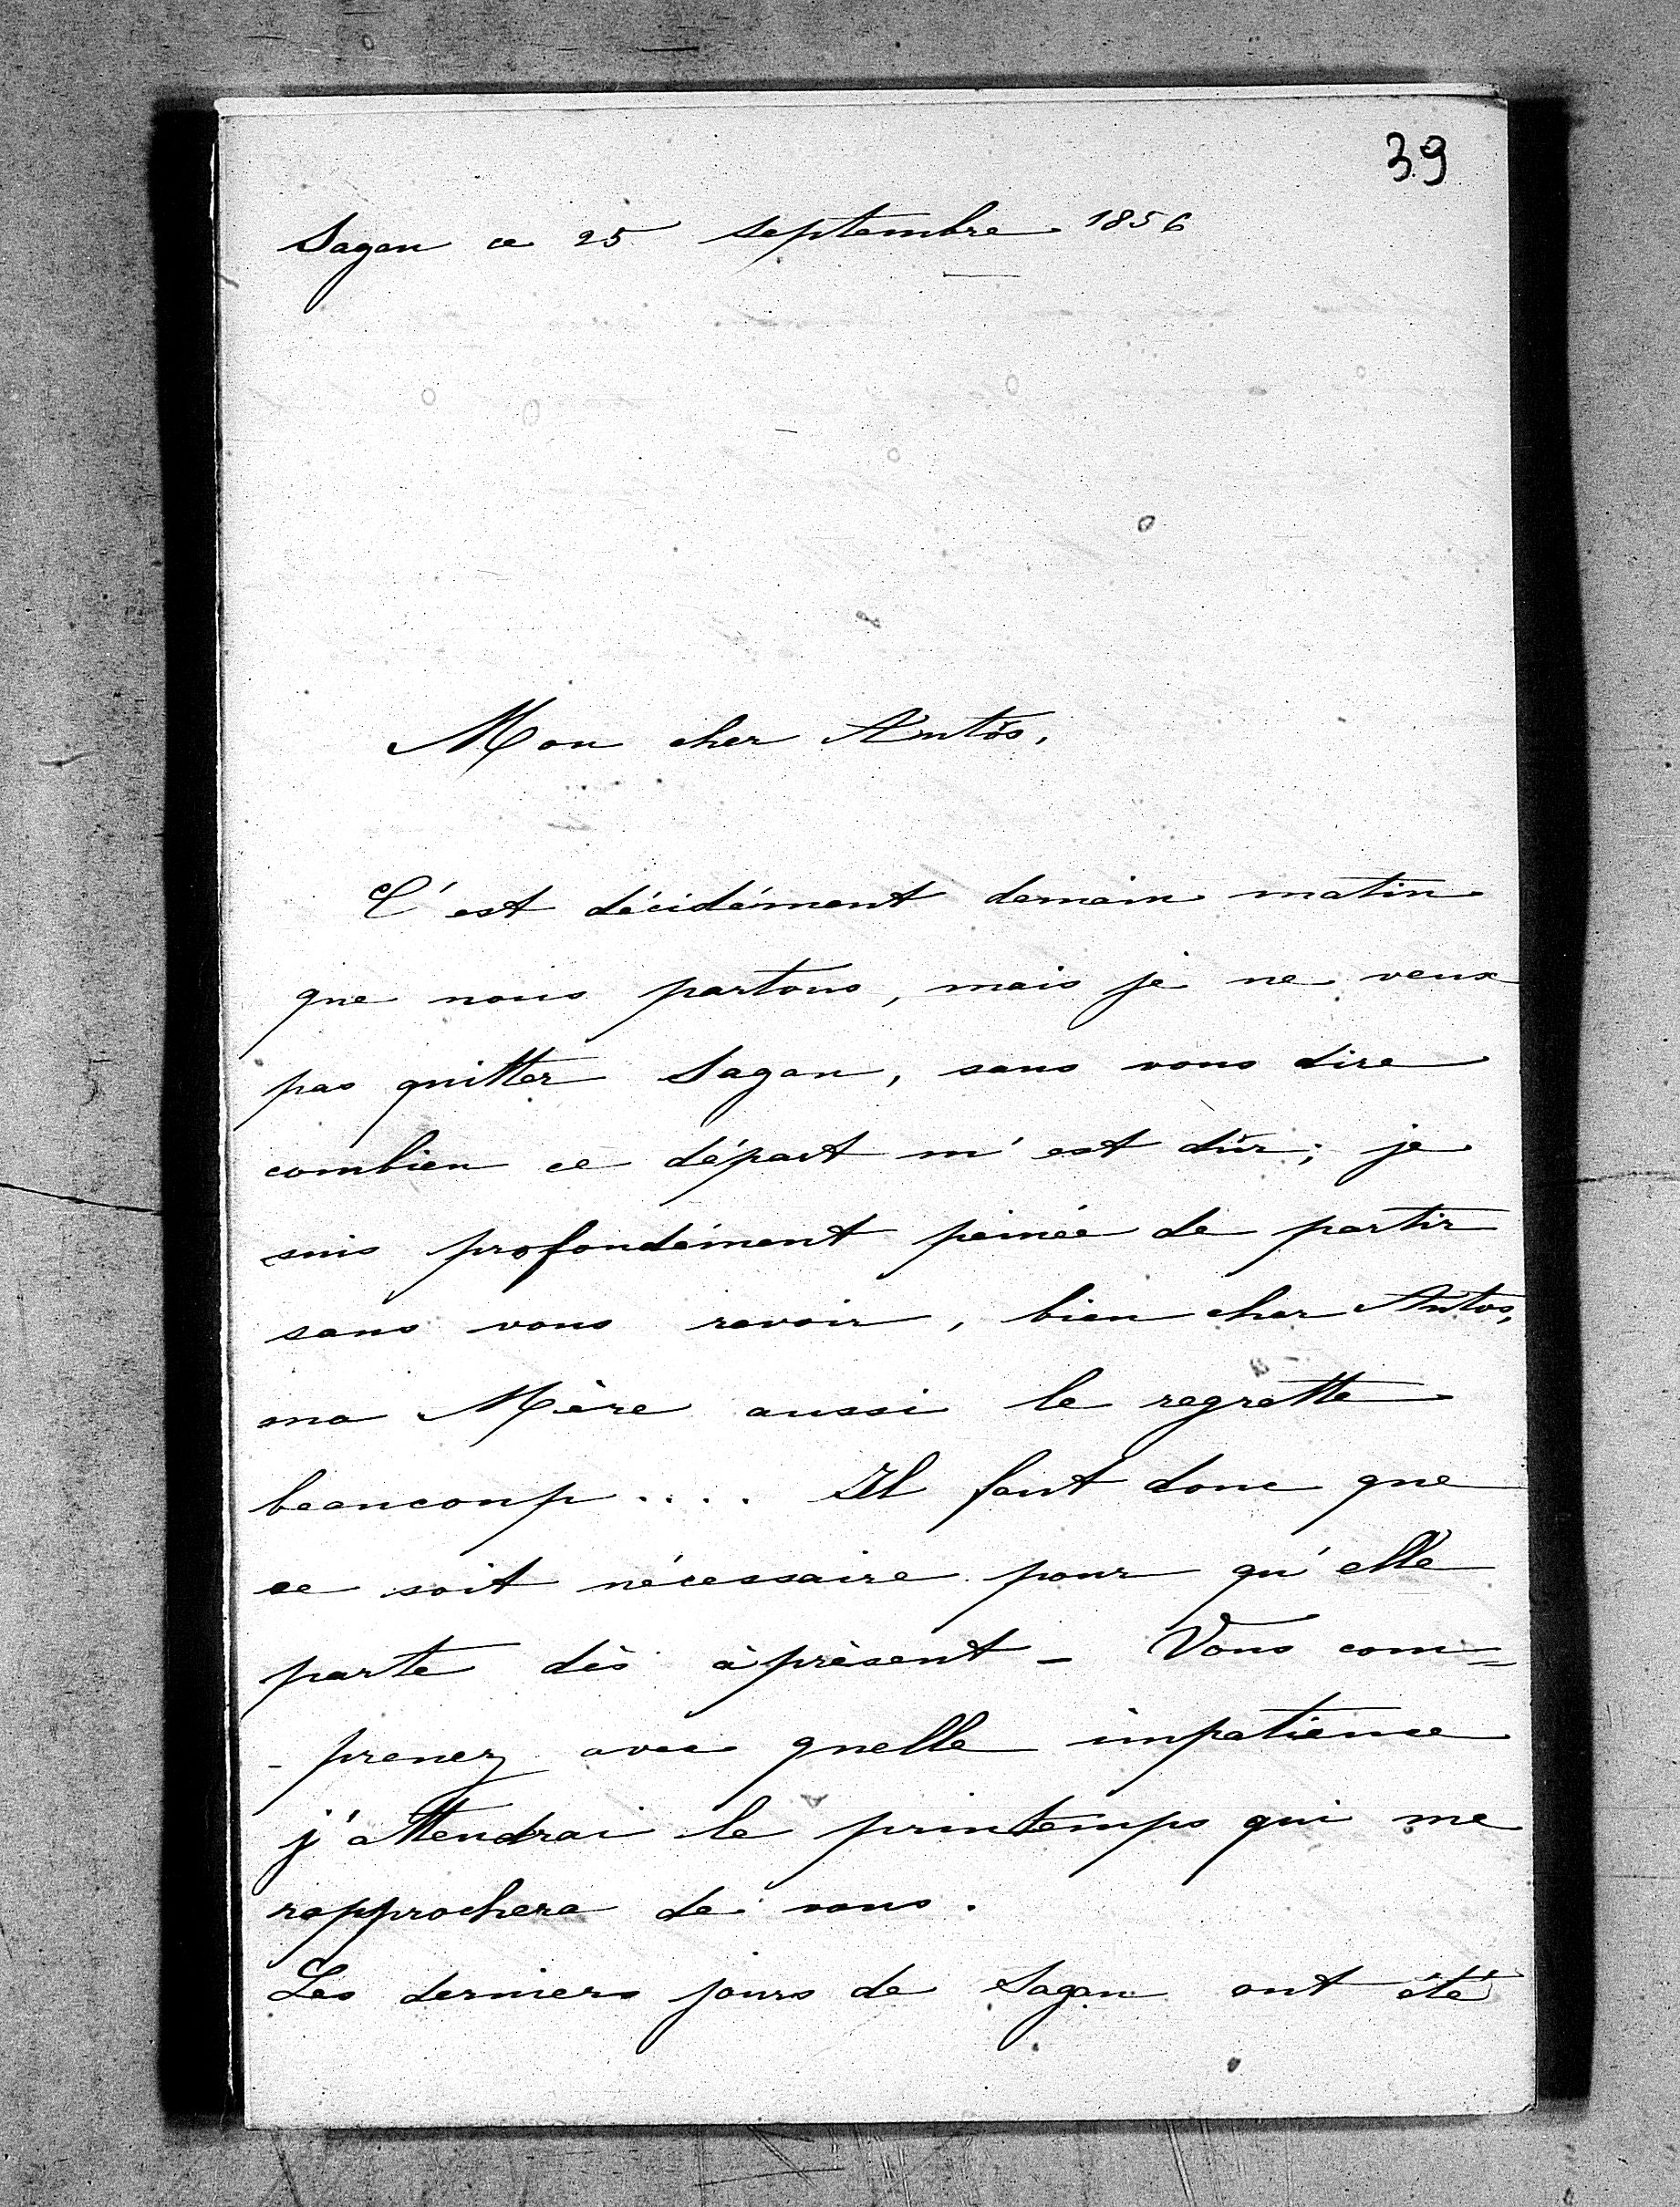 39
Sagan ce 25 septembre 1856
Mon cher Antoś,
C'est décidément demain matin
que nous partons, mais je ne veux
pas quitter Sagan, sans vous dire
combien ce départ m'est dûr; je
suis profondément peinée de partir
sans vous revoir, bien cher Antos,
ma Mère aussi le regrette
beaucoup.... Il faut donc que
ce soit nécessaire pour qu'elle
parte dès àprèsent – Vous com=
-prenez avec quelle impatience
j'attendrai le printemps qui me
rapprochera de vous.
Les derniers jours de Sagan ont été